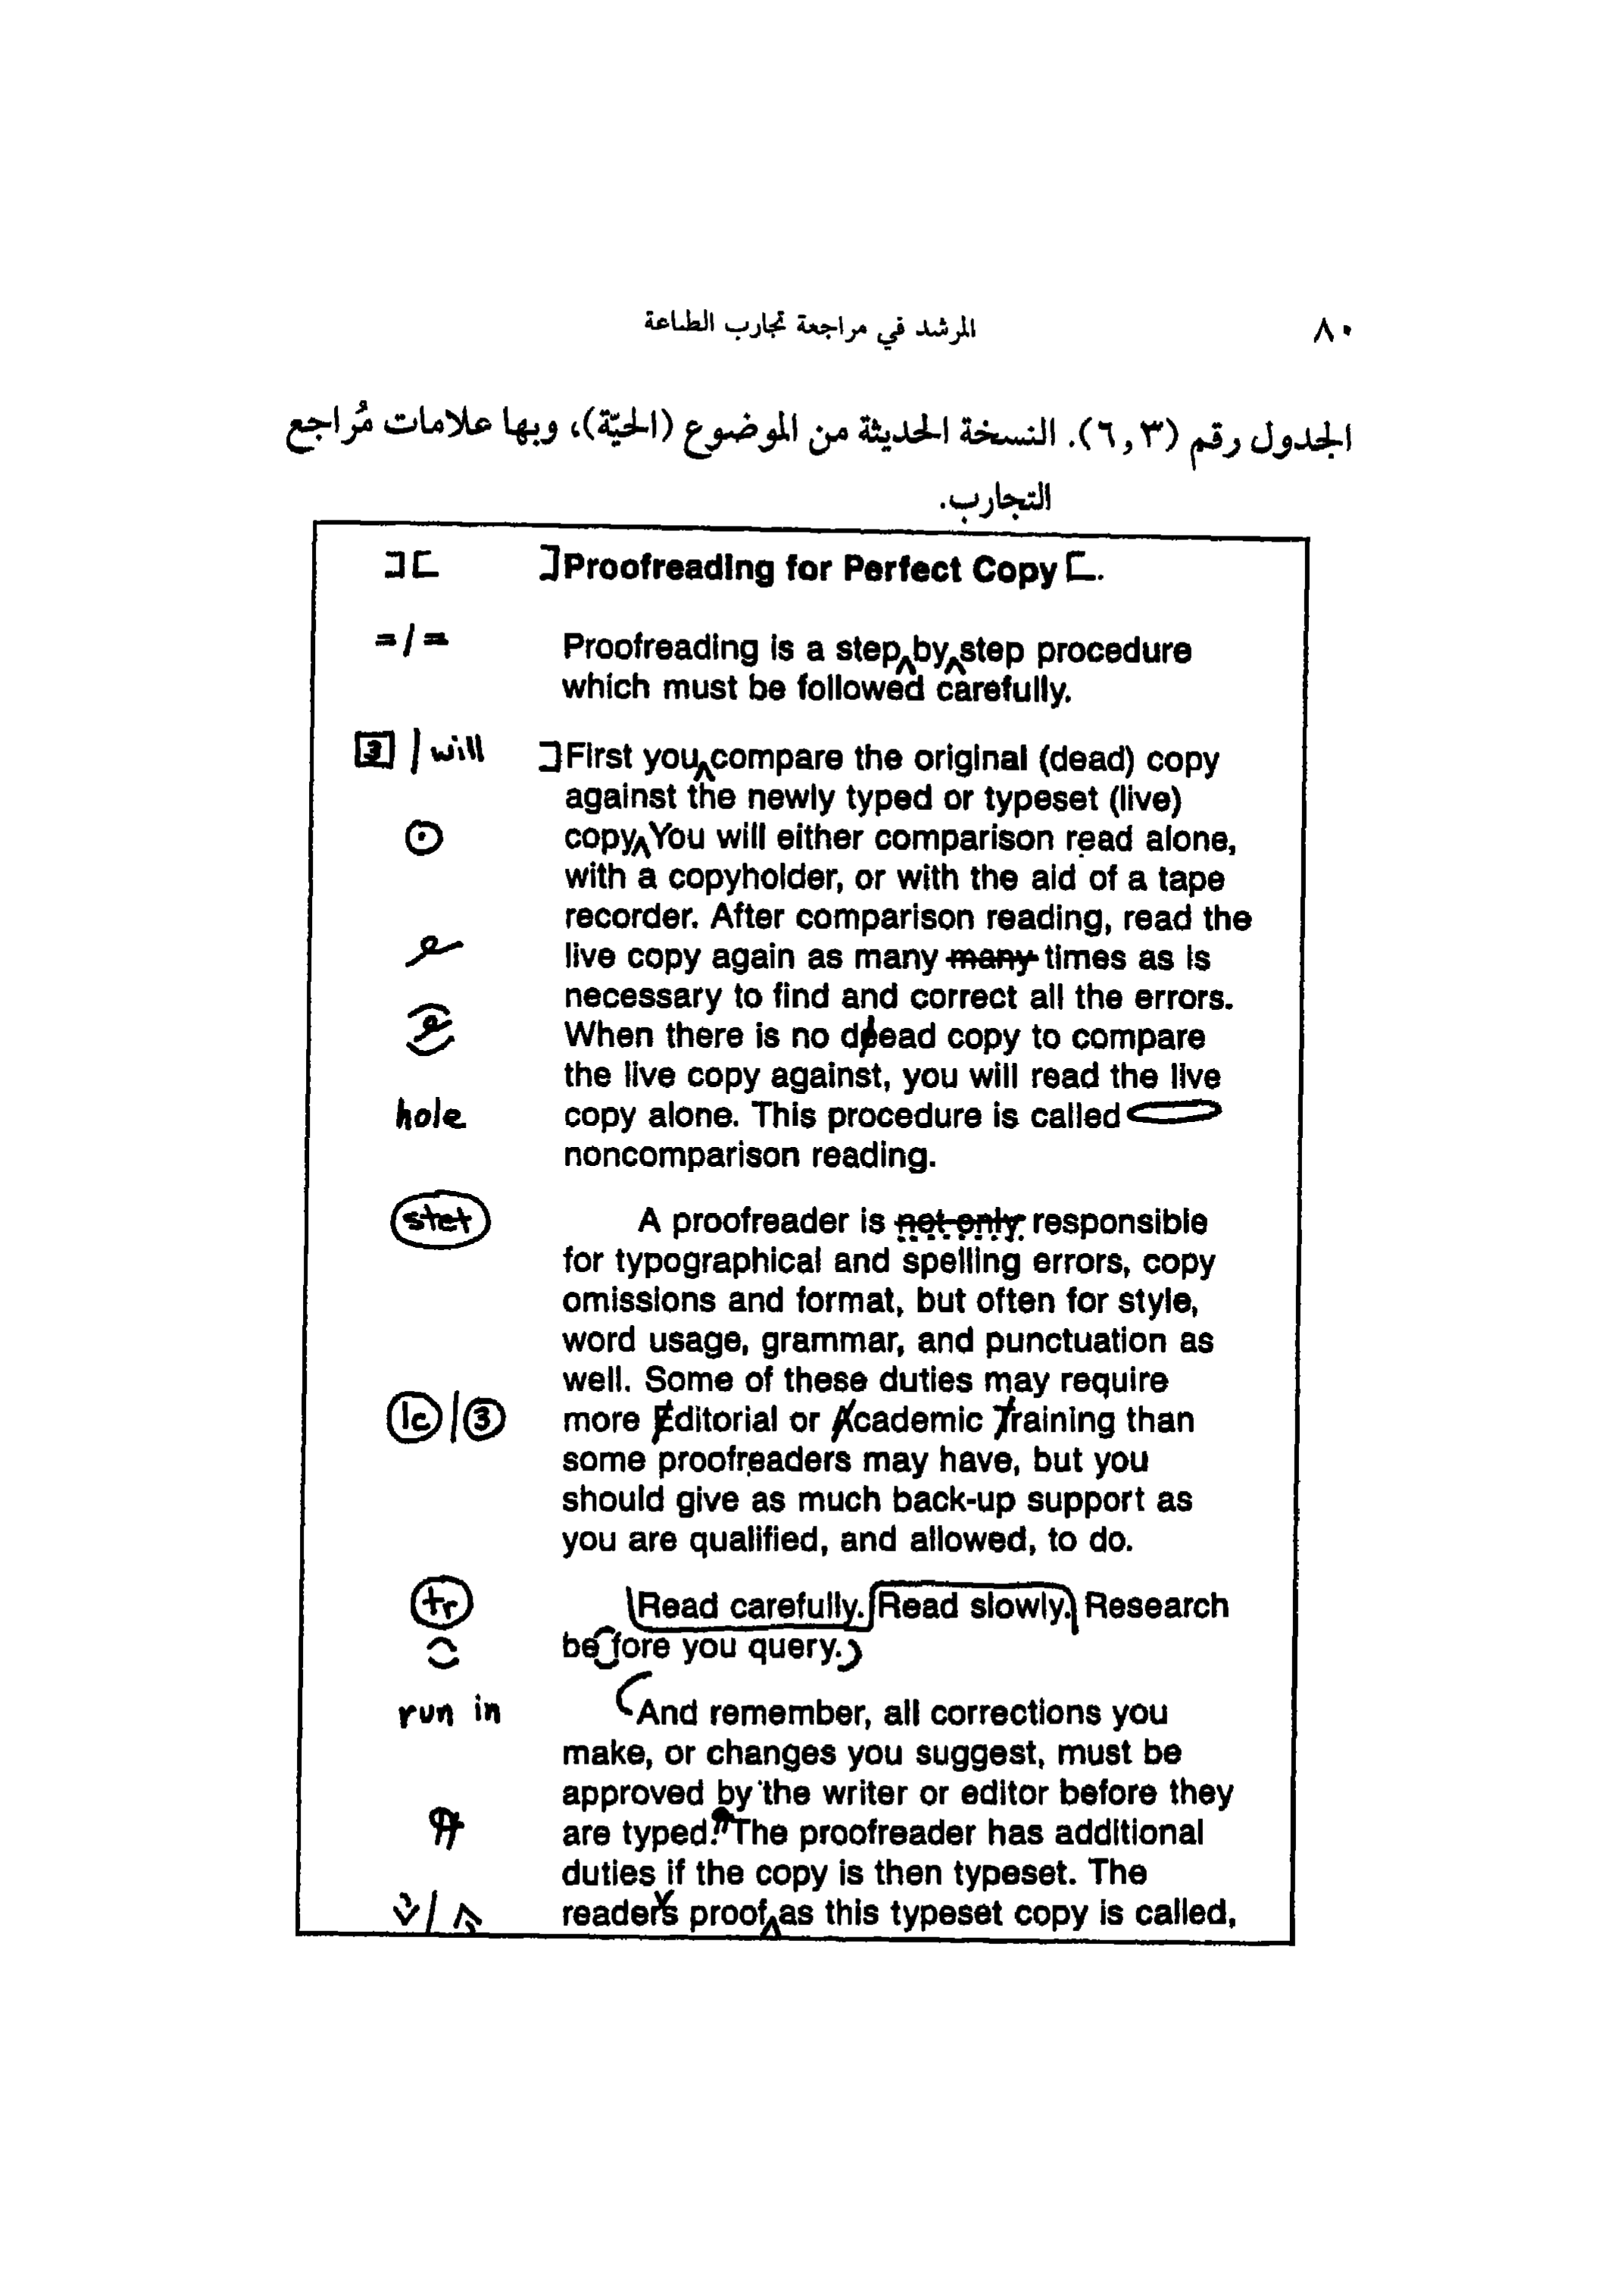 المرشد في مراجعة تجارب الطباعة ٨٠
الجدول رقم (٦,٣). النسخة الحديثة من الموضوع (الحيّة)، وبها علامات مُراجع
التجارب.
][ ]Proofreading for Perfect Copy[.
=/= Proofreading is a step‸by‸step procedure
which must be followed carefully.
3 / will ]First you‸compare the original (dead) copy
against the newly typed or typeset (live)
⊙ copy‸You will either comparison read alone,
with a copyholder, or with the aid of a tape
recorder. After comparison reading, read the
live copy again as many many times as is
necessary to find and correct all the errors.
When there is no deead copy to compare
the live copy against, you will read the live
hole copy alone. This procedure is called
noncomparison reading.
stet A proofreader is not only responsible
for typographical and spelling errors, copy
omissions and format, but often for style,
word usage, grammar, and punctuation as
well. Some of these duties may require
lc / 3 more Editorial or Academic Training than
some proofreaders may have, but you
should give as much back-up support as
you are qualified, and allowed, to do.
tr Read carefully. Read slowly. Research
be fore you query.
run in And remember, all corrections you
make, or changes you suggest, must be
approved by the writer or editor before they
¶ are typed. The proofreader has additional
duties if the copy is then typeset. The
readers proof‸as this typeset copy is called,